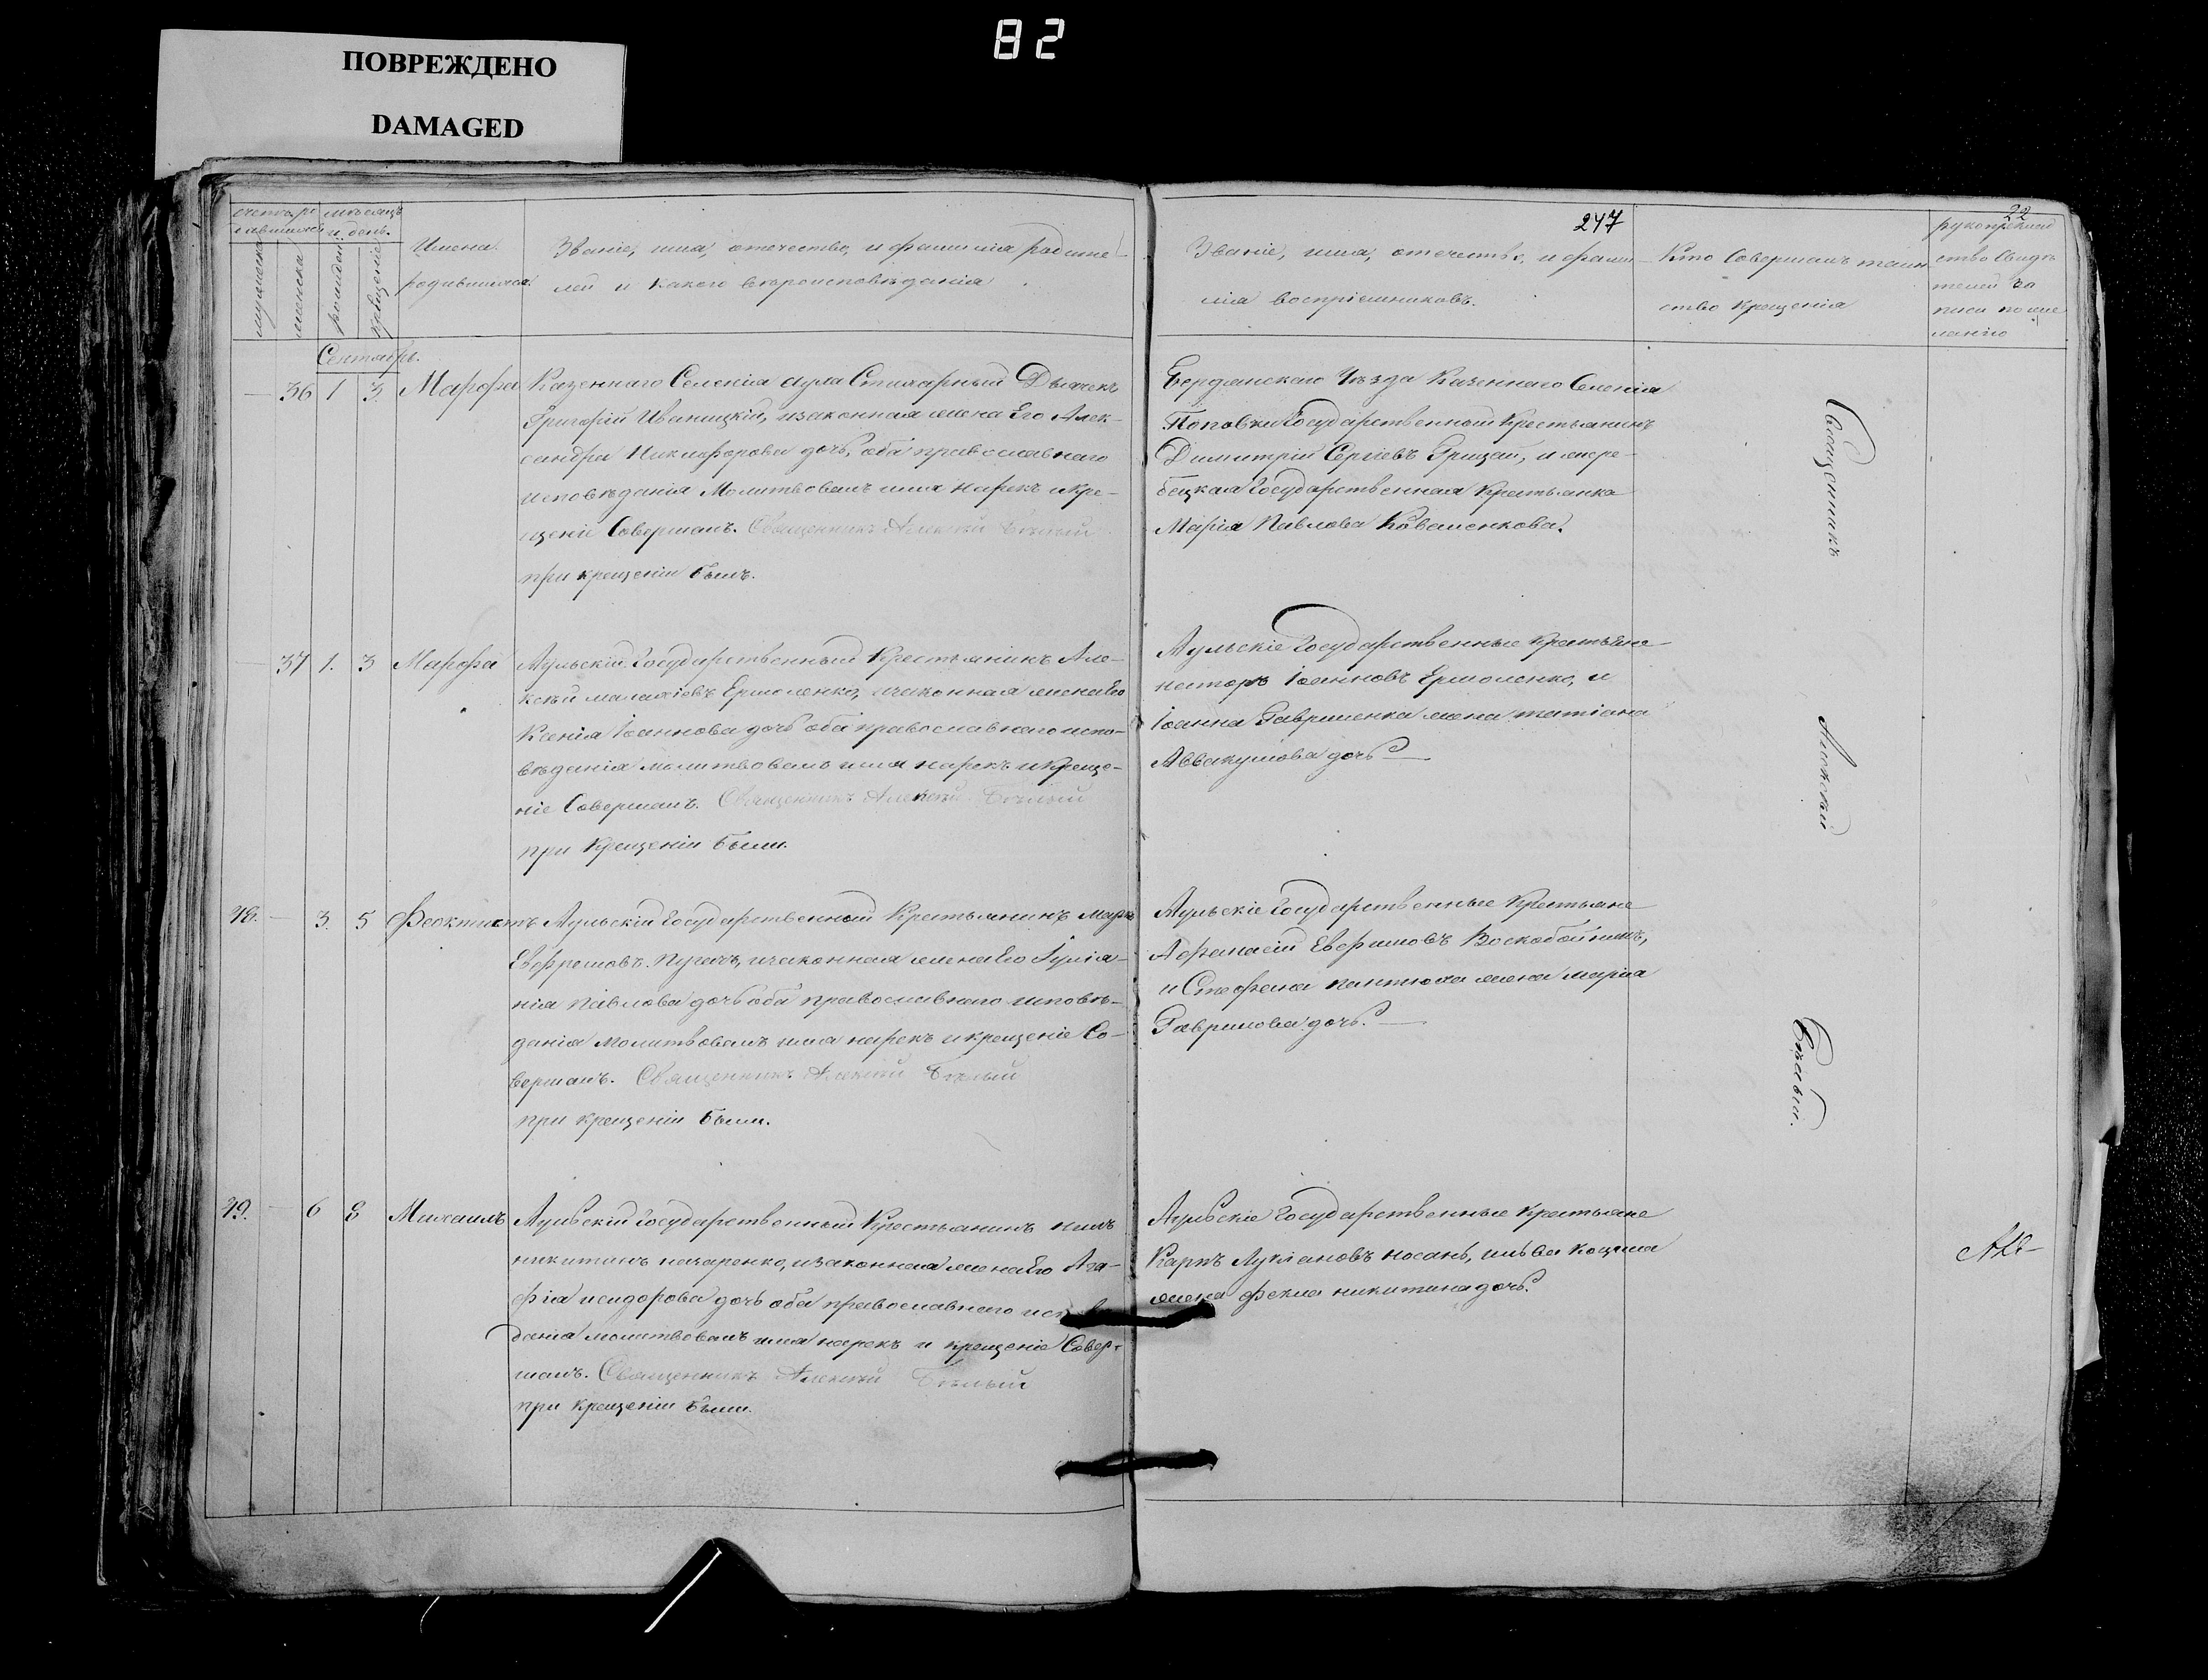 82
ПОВРЕЖДЕНО
DAMAGED
247
22
счетъ ро мѣсяцъ
дившихся и день.
мужеска
женска
рожденія
крещенія
Имена
родившихся
Званіе, имя, отечество, и фамилія родите
лей и какого вѣроисповѣданія
Званіе, имя, отечество, и фами
лія воспріемниковъ.
Кто Совершалъ таин
ство крещенія
рукоприклад
ство Свидѣ
телей за
писи по же
ланію
Сентябрь.
— 36 1 3 Марфа
Казеннаго Селенія Аула Стихарный Дьячекъ
Григорій Иваницкій, изаконная жена Его Алек-
сандра Никифорова дочь, оба православнаго
исповѣданія Молитвовалъ имя нарекъ икре-
щеніе Совершалъ. Священникъ Алексѣй Бѣлый
при крещеніи былъ.
Бердянскаго Уѣзда Казеннаго Селенія
Поповки Государственный Крестьянинъ
Димитрій Сергіевъ Грицай,
Государственная Крестьянка
Марія Павлова Коваленкова.
37 1. 3 Марфа
Аульскій Государственный Крестьянинъ Але-
ксѣй малахіевъ Ермоленко, изаконная жена Его
Ксенія Іоаннова дочь оба православнаго испо-
вѣданія молитвовалъ имя нарекъ икреще-
ніе Совершалъ. Священникъ Алексѣй Бѣлый
при Крещеніи были.
Аульскіе Государственные Крестьяне
несторъ Іоанновъ Ермоленко, и
Іоанна Гавриленка жена татіана
Аввакумова дочь —
48. — 3. 5 Феоктистъ
Аульскій Государственный Крестьянинъ Маркъ
Евфремовъ Пугачъ, изаконная жена Его Іуліа-
нія павлова дочь оба православнаго исповѣ-
данія Молитвовалъ имя нарекъ икрещеніе Со-
вершалъ. Священникъ Алексѣй Бѣлый
при крещеніи были.
Аульскіе Государственные Крестьяне
Афанасій Евфимовъ Воскобойникъ,
и Стефана пантюха жена марія
Гаврилова дочь. —
49. — 6 8 Михаилъ
Аульскій Государственный Крестьянинъ нилъ
никитинъ назаренко, изаконная жена Его Ага-
фіа исидорова дочь оба православнаго
данія молитвовалъ имя нарекъ и крещеніе Совер-
шалъ. Священникъ Алексѣй Бѣлый
при Крещеніи были.
Аульскіе Государственные Крестьяне
Карпъ Лукіановъ носань,
жена фекла никитина дочь.
Священникъ
Алексѣй
Бѣлый.